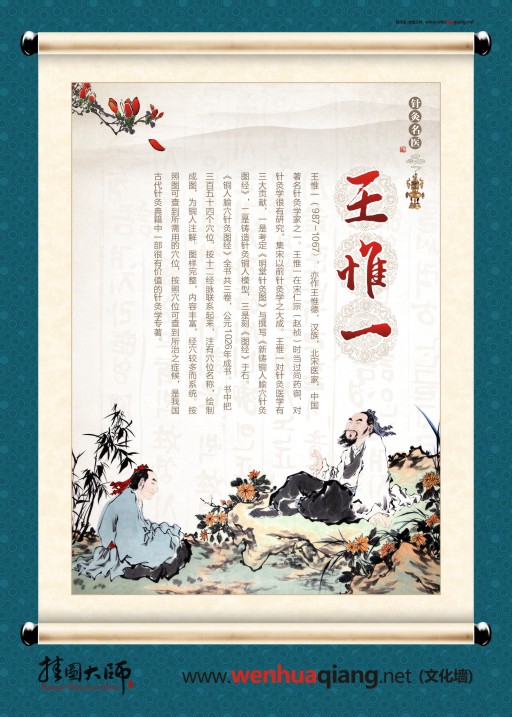 www.wenhuaqiang.net
针灸名医
王惟一
王惟一（987-1067），亦作王惟德，汉族，北宋医家，中国
著名针灸学家之一。王惟一在宋仁宗（赵祯）时当过尚药御，对
针灸学很有研究，集宋以前针灸学之大成。王惟一对针灸医学有
三大贡献，一是考定《明堂针灸图》与撰写《新铸铜人腧穴针灸
图经》，二是铸造针灸铜人模型，三是刻《图经》于石。
《铜人腧穴针灸图经》全书共三卷，公元1026年成书。书中把
三百五十四个穴位，按十二经脉联系起来，注有穴位名称，绘制
成图，为铜人注解。图样完整，内容丰富，经穴较多而系统，按
照图可查到所需用的穴位，按照穴位可查到所治之症候，是我国
古代针灸典籍中一部很有价值的针灸学专著。
挂图大师
www.wenhuaqiang.net (文化墙)